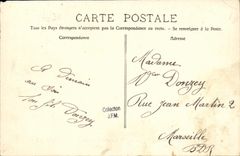 CARTE POSTALE
Tous les Pays étrangers n'acceptent pas la Correspondance au recto. - Se renseigner à la Poste.
Correspondance
Adresse
à Demain
Donzey
Collection
J.F.M.
Madame
Donzey
Rue Jean Martin 2
Marseille